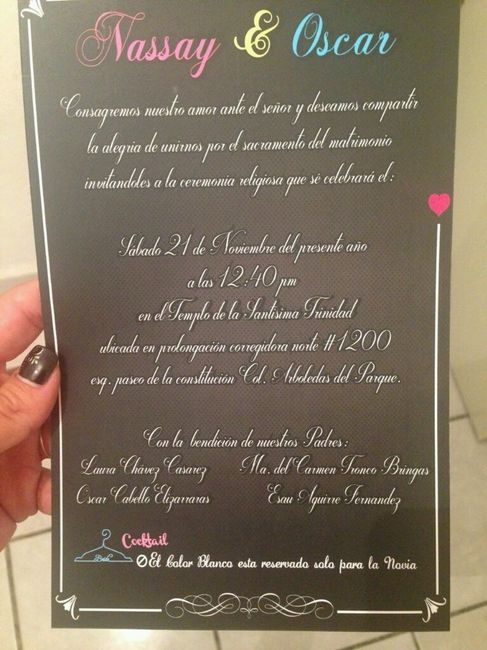 Nassay & Oscar
Consagremos nuestro amor ante el señor y deseamos compartir
la alegría de unirnos por el sacramento del matrimonio
invitandoles a la ceremonia religiosa que sé celebrará el:
Sábado 21 de Noviembre del presente año
a las 12:40 pm
en el Templo de la Santísima Trinidad
ubicada en prolongación corregidora norte #1200
esq. paseo de la constitución Col. Arboledas del Parque.
Con la bendición de nuestros Padres:
Laura Chávez Casarez Ma. del Carmen Tronco Bringas
Oscar Cabello Elizarraras Esau Aguirre Fernandez
Cocktail
Bride
El Color Blanco esta reservado solo para la Novia